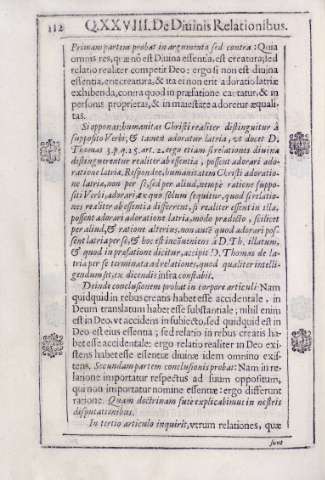 112 Q.XXVIII. De Diuinis Relationibus.
Primam partem probat in argumento sed contra: Quia
omnis res, quæ nō est Diuina essentia, est creatura; sed
relatio realiter competit Deo: ergo si non est diuina
essentia, erit creatura, & ita ei non erit adoratio latriæ
exhibenda, contra quod in præfatione cantatur, & in
personis proprietas, & in maiestate adoretur æquali-
tas.
Si opponas: humanitas Christi realiter distinguitur à
supposito Verbi, & tamen adoratur latria, vt docet D.
Thomas 3.p.q.25.art.2. ergo etiam si relationes diuinæ
distinguerentur realiter ab essentia, possent adorari ado-
ratione latria. Respondeo, humanitatem Christi adoratio-
ne latria, non per se, sed per aliud, nempè ratione suppo-
siti Verbi, adorari: ex quo solùm sequitur, quod si relatio-
nes realiter ab essentia differrent, si realiter essent in illa,
possent adorari adoratione latria, modo prædicto, scilicet
per aliud, & ratione alterius, non autē quod adorari pos-
sent latria per se, & hoc est incōueniens à D. Th. illatum,
& quod in præfatione dicitur, accipit D. Thomas de la-
tria per se terminata ad relationes, quod qualiter intelli-
gendum sit, ex dicendis infra constabit.
Deinde conclusionem probat in corpore articuli: Nam
quidquid in rebus creatis habet esse accidentale, in
Deum translatum habet esse substantiale; nihil enim
est in Deo, vt accidens in subiecto, sed quidquid est in
Deo est eius essentia; sed relatio in rebus creatis ha-
bet esse accidentale: ergo relatio realiter in Deo exi-
stens habet esse essentiæ diuinæ idem omnino exis-
tens. Secundam partem conclusionis probat: Nam in re-
latione importatur respectus ad suum oppositum,
qui non importatur nomine essentiæ: ergo differunt
ratione. Quam doctrinam fuse explicabimus in nostris
disputationibus.
In tertio articulo inquirit, vtrum relationes, quæ
sunt